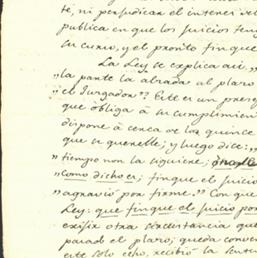 te, ni perjudican el interes
publica en que los juicios teng
su curso, y el pronto finque
La Ley se explica asi „
„la parte la alzada al plazo
„el Jurgador"? Este es un
que obliga à su cumplimien
dispone à cerca de los quince
que se querelle; y luego dice: „
tiempo non la siguiere;
„como dicho es; finque el juicio
„agraviò por firme." Con que
Ley: que finque el juicio por
existir otra circunstancia que
parado el plazo; queda conver
este solo echo, recibiò la senten